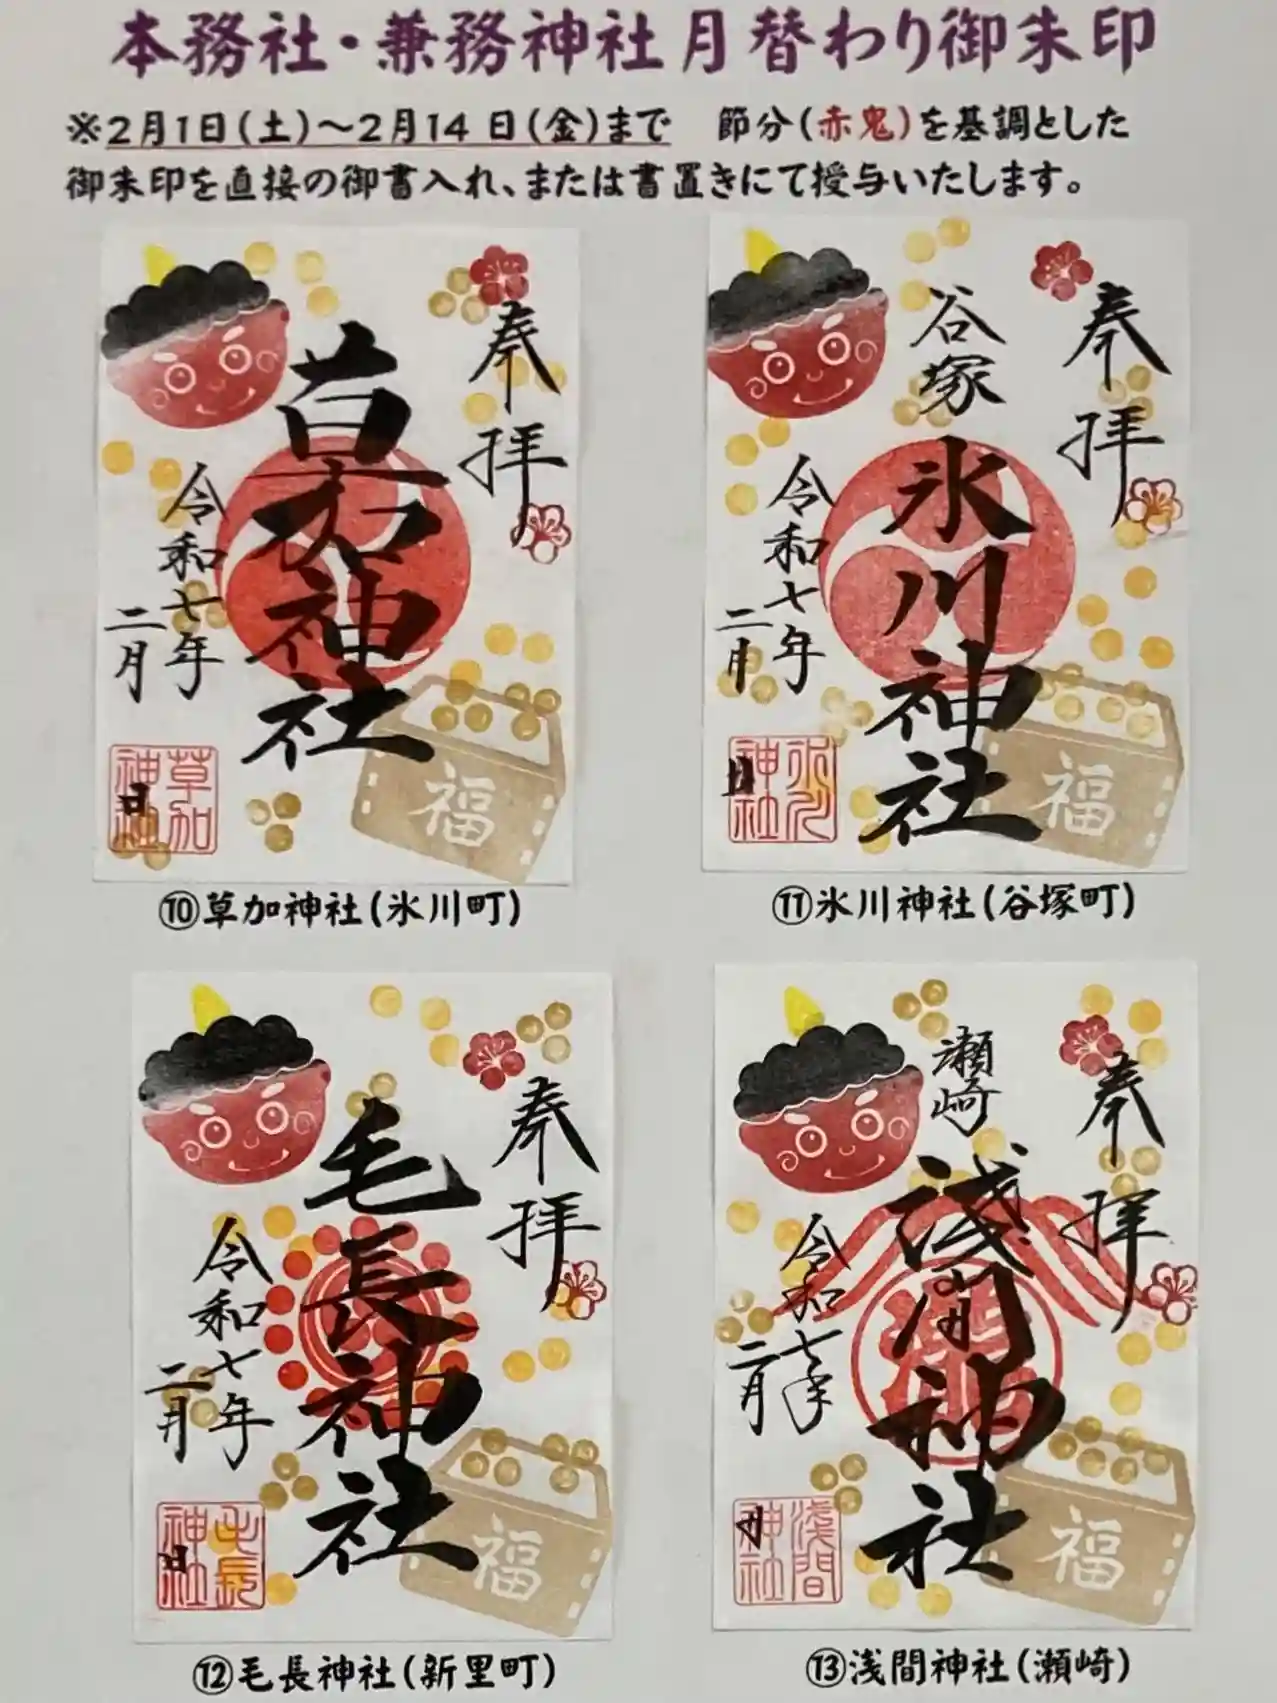 本務社・兼務神社月替わり御朱印
※2月1日(土)～2月14日(金)まで 節分(赤鬼)を基調とした
御朱印を直接の御書入れ、または書置きにて授与いたします。
奉拝
草加神社
令和七年
二月
日
草加神社
福
⑩草加神社(氷川町)
奉拝
谷塚
氷川神社
令和七年
二月
日
氷川神社
福
⑪氷川神社(谷塚町)
奉拝
毛長神社
令和七年
二月
日
毛長神社
福
⑫毛長神社(新里町)
奉拝
瀬崎
浅間神社
令和七年
二月
日
浅間神社
福
⑬浅間神社(瀬崎)